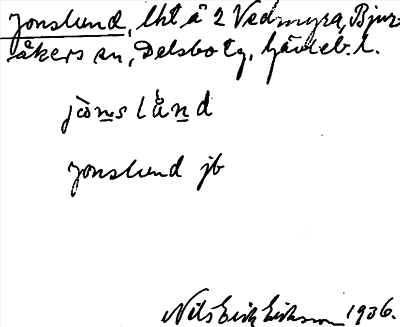 Jonslund, lht å 2 Vedmyra, Bjur-
åkers sn, Delsbo tg, Gävleb. l.
jòns lån̲d
Jonslund jb
Nils Erik Eriksson 1936.